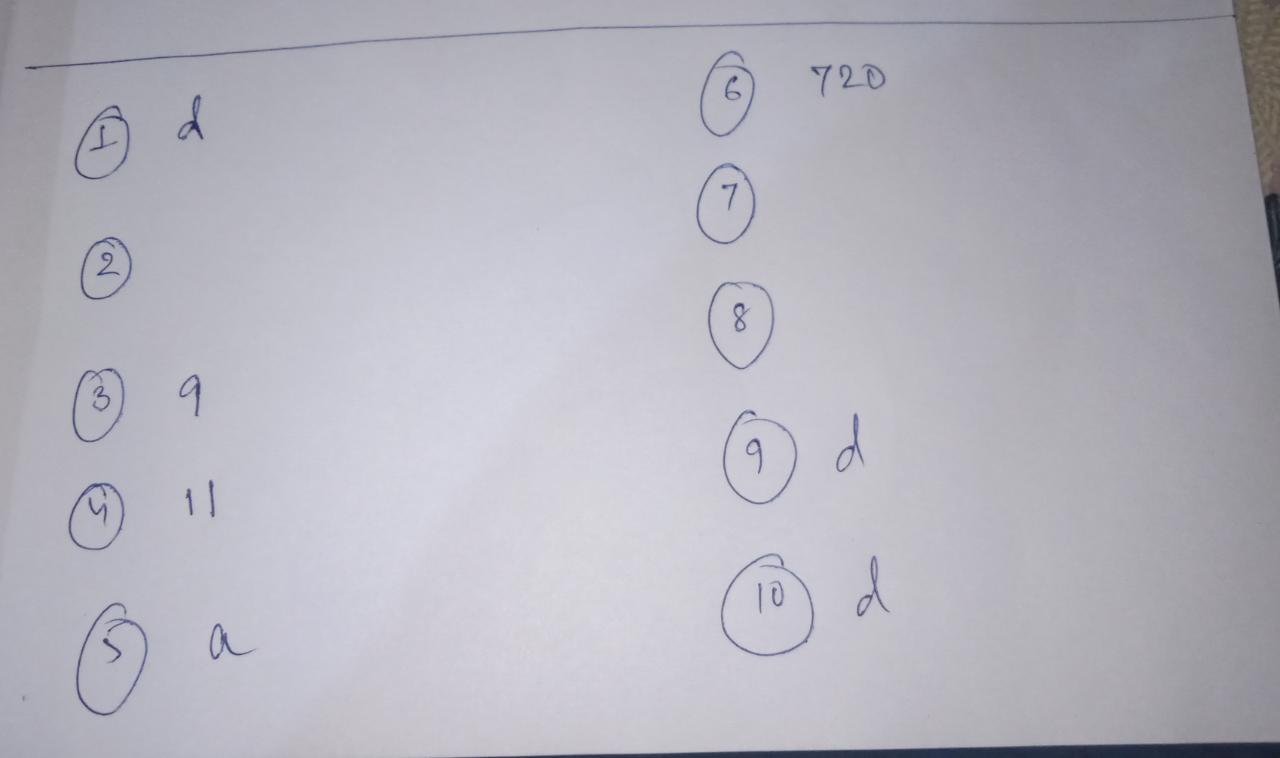 1 d
2
3 9
4 11
5 a
6 720
7
8
9 d
10 d